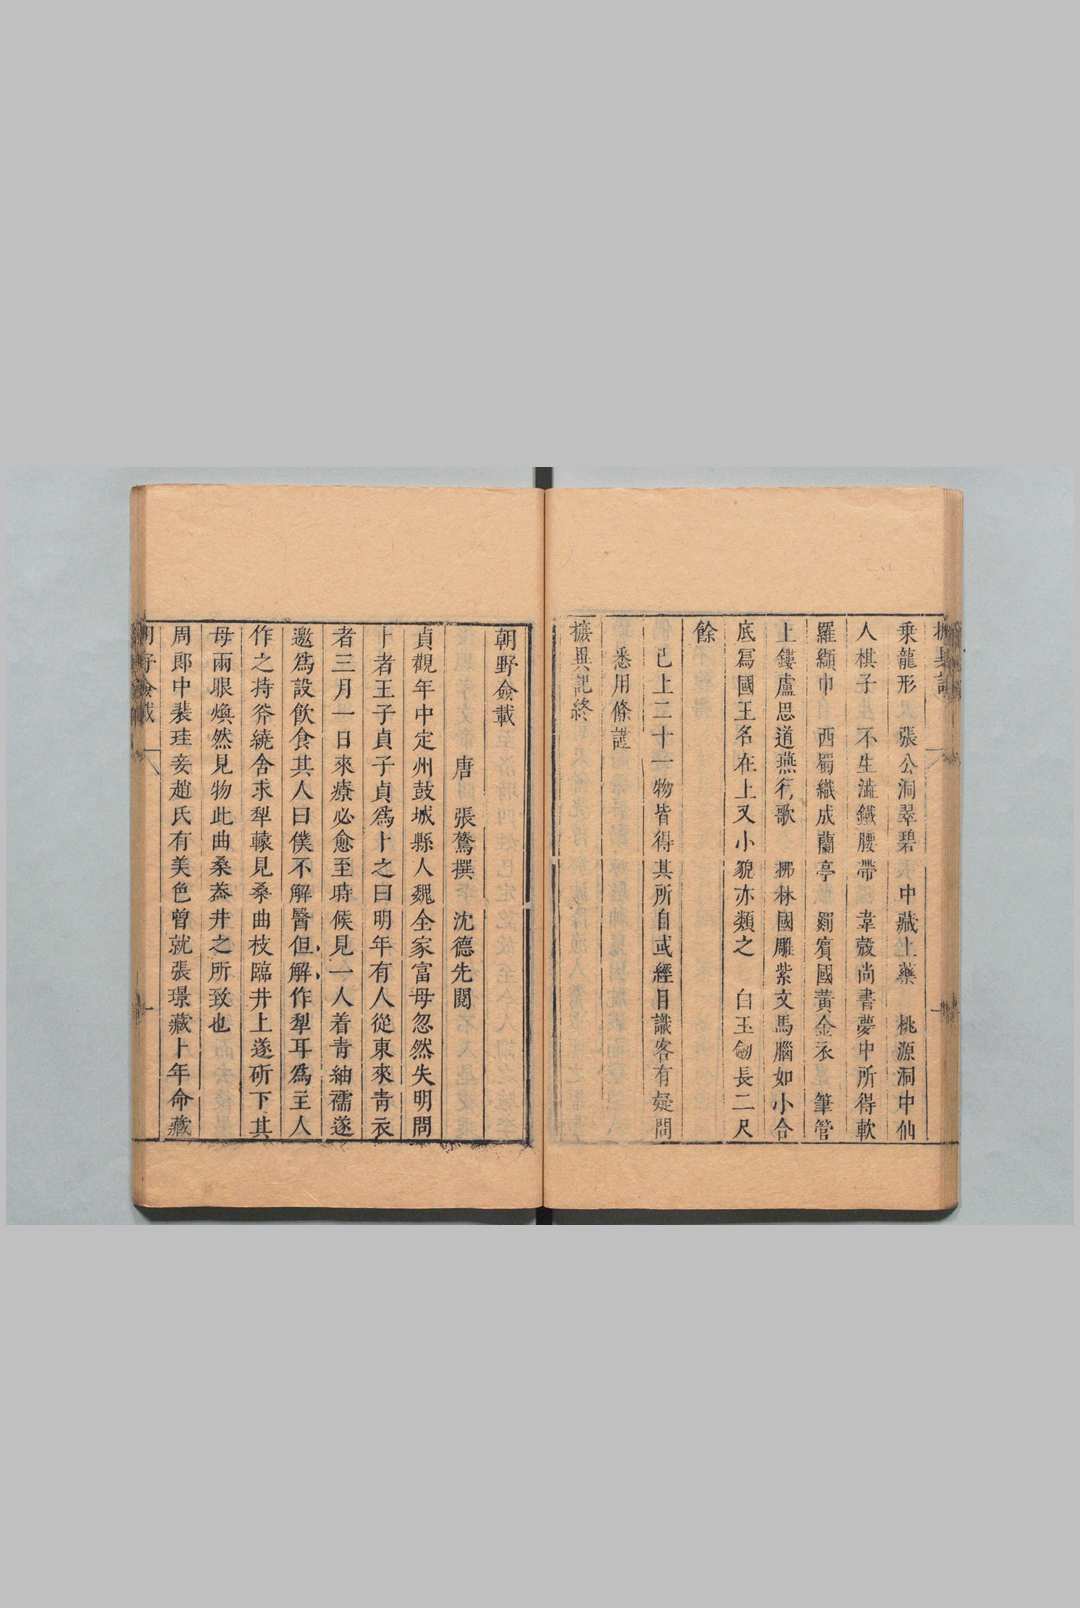 乘龍形　張公洞翠碧　中藏上藥　桃源洞中仙
人棋子　不生澁鐵腰帶　韋殼尚書夢中所得軟
羅纈巾　西蜀織成蘭亭　罽賓國黃金衣　筆管
上鏤盧思道燕行歌　拂林國雕紫文馬腦如小合
底寫國王名在上叉小貌亦類之　白玉劒長二尺
餘
已上二十一物皆得其所自或經目識客有疑問
悉用條證
摭異記終
朝野僉載
唐　張鷟撰　沈德先閱
貞觀年中定州鼓城縣人魏全家富母忽然失明問
卜者王子貞子貞爲卜之曰明年有人從東來青衣
者三月一日來療必愈至時候見一人着青紬襦遂
邀爲設飲食其人曰僕不解醫但解作犁耳爲主人
作之持斧繞舍求犁轅見桑曲枝臨井上遂斫下其
母兩眼煥然見物此曲桑葢井之所致也
周郎中裴珪妾趙氏有美色曾就張璟藏卜年命藏